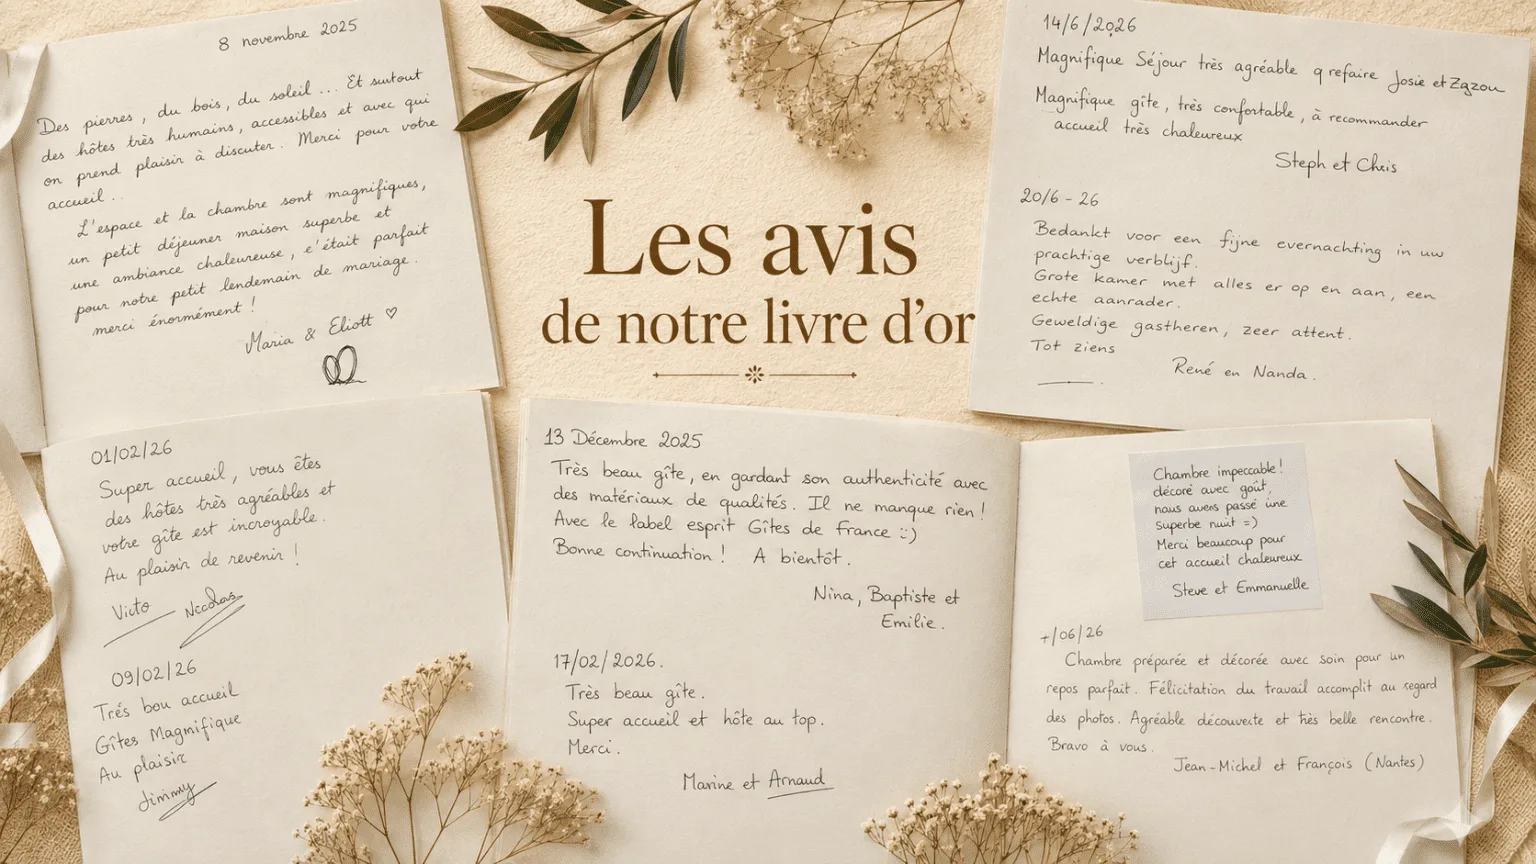 8 novembre 2025
Des pierres, du bois, du soleil ... Et surtout
des hôtes très humains, accessibles et avec qui
on prend plaisir à discuter. Merci pour votre
accueil..
L'espace et la chambre sont magnifiques,
un petit déjeuner maison superbe et
une ambiance chaleureuse, c'était parfait
pour notre petit lendemain de mariage.
merci énormément !
Maria & Eliott ♡
Les avis
de notre livre d'or
14/6/2026
Magnifique Séjour très agréable q refaire Josie et Zazou
Magnifique gîte, très confortable, à recommander
accueil très chaleureux
Steph et Chris
20/6 - 26
Bedankt voor een fijne evernachting in uw
prachtige verblijf.
Grote kamer met alles er op en aan, een
echte aanrader.
Geweldige gastheren, zeer attent.
Tot ziens
René en Nanda.
01/02/26
Super accueil, vous êtes
des hôtes très agréables et
votre gîte est incroyable.
Au plaisir de revenir !
Victo Nicolas
09/02/26
Trés bou accueil
Gîtes Magnifique
Au plaisir
Jimmy
13 Décembre 2025
Très beau gîte, en gardant son authenticité avec
des matériaux de qualités. Il ne manque rien !
Avec le label esprit Gîtes de France :)
Bonne continuation ! A bientôt.
Nina, Baptiste et
Emilie.
17/02/2026.
Très beau gîte.
Super accueil et hôte au top.
Merci.
Marine et Arnaud
Chambre impeccable !
décoré avec goût,
nous avens passé une
superbe nuit =)
Merci beaucoup pour
cet accueil chaleureux
Steve et Emmanuelle
+/06/26
Chambre préparée et décorée avec soin pour un
repos parfait. Félicitation du travail accomplit au regard
des photos. Agréable découverte et très belle rencontre.
Bravo à vous.
Jean-Michel et François (Nantes)